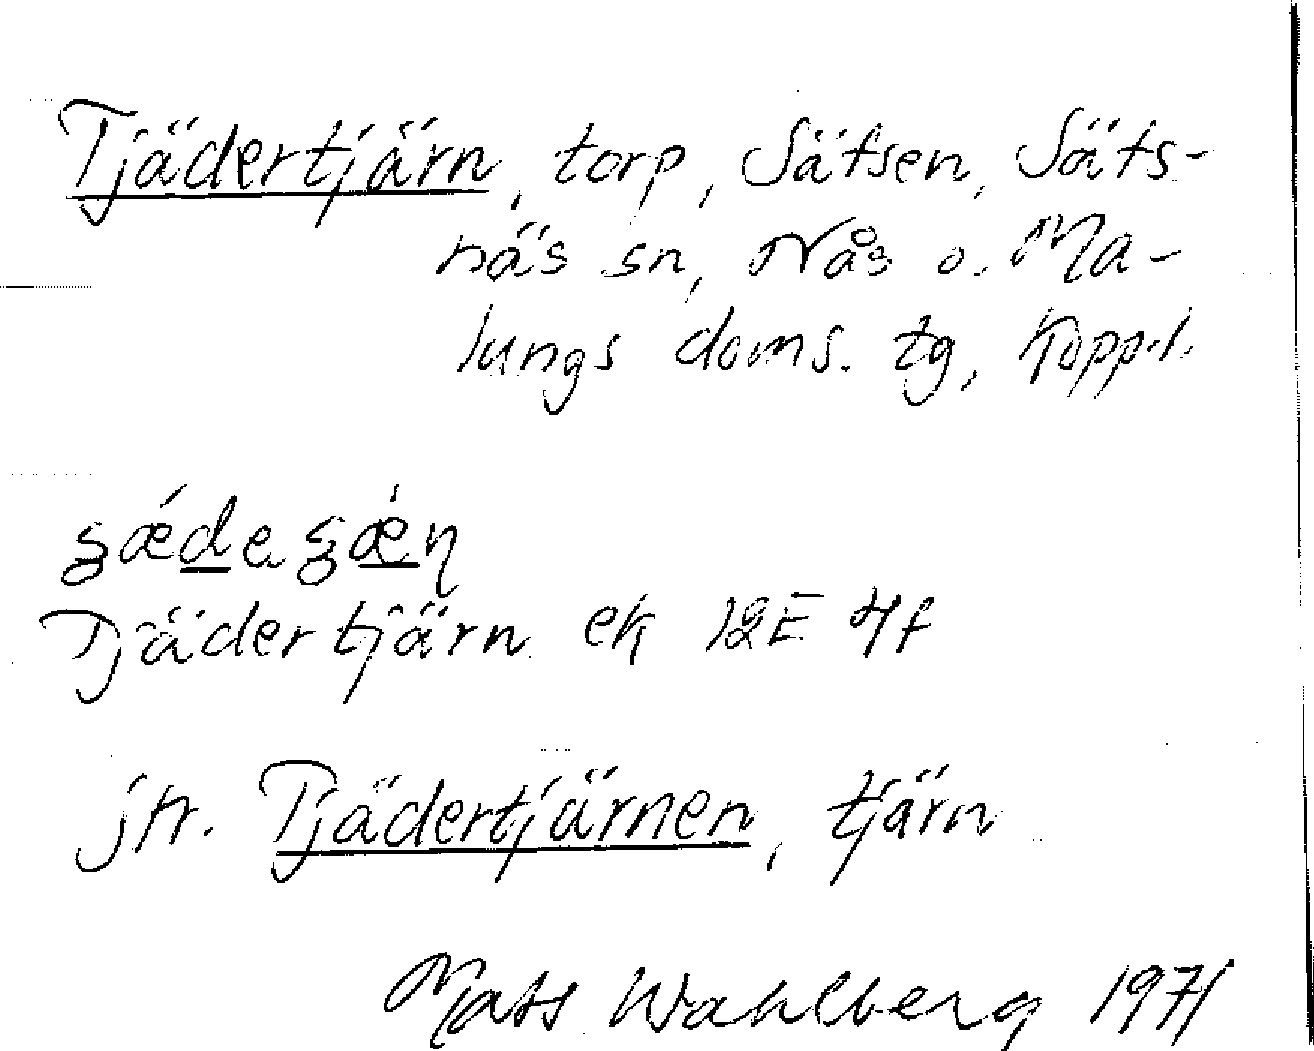 Tjädertjärn, torp, Sätsen, Säts-
näs sn, Nås o. Ma-
lungs doms. tg, Koppl.
Tjädertjärn ek 12E 4f
jfr. Tjädertjärnen, tjärn
Mats Wahlberg 1971